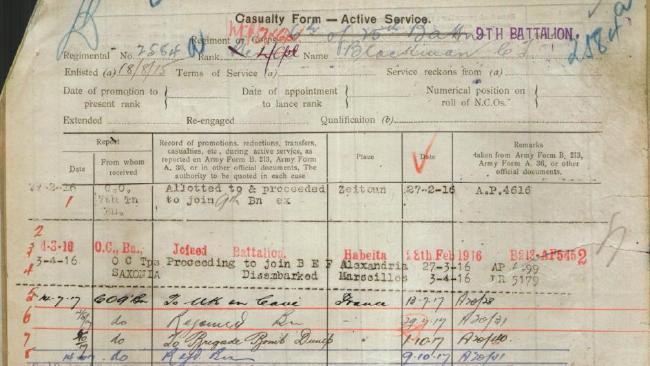 Casualty Form — Active Service.
9TH BATTALION.
Regiment or Corps 25th Battn
2584a
Regimental No. 2584a Rank. L/Cpl Name Blackman C J
Enlisted (a) 18/8/15 Terms of Service (a) Service reckons from (a)
Date of promotion to present rank Date of appointment to lance rank Numerical position on roll of N.C.Os.
Extended Re-engaged Qualification (b)
Report
Date From whom received
Record of promotions, reductions, transfers, casualties, etc., during active service, as reported on Army Form B. 213, Army Form A. 36, or in other official documents. The authority to be quoted in each case
Place
Date
Remarks
taken from Army Form B. 213, Army Form A. 36, or other official documents.
-2-16 C.O. Allotted to & proceeded Zeitoun 27-2-16 A.P.4616
1 Bn. to join 9th Bn ex
2
3 4-3-16 O.C., Bn., Joined Battalion. Habeita 28th Feb 1916 B213-AP545 2
4 3-4-16 O C Tps Proceeding to join B E F Alexandria 27-3-16
SAXONIA Disembarked Marseilles 3-4-16 5179
5 -7-17 CO9Bn To UK on Leave France -7-17 A20/28
6 do Rejoined Bn " 29-7-17 A20/31
7 do To Brigade Bomb Dump " 1-10-17 A20/40
8 do Rejd Bn " 9-10-17 A20/41